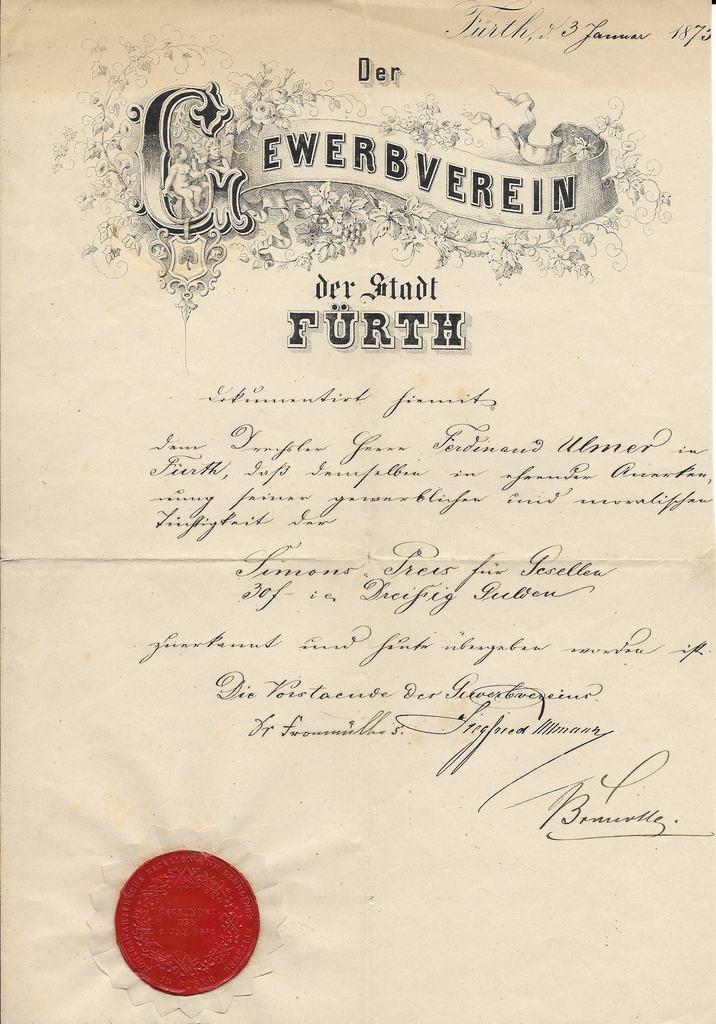 Fürth, d. 3 Januar 1873
Der
GEWERBVEREIN
der Stadt
FÜRTH
dokumentirt hiemit
dem Drechsler Herrn Ferdinand Ulmer in
Fürth, daß demselben in ehrender Anerken„
nung seiner gewerblichen und moralischen
Tüchtigkeit der
Simons-Preis für Gesellen
30 f- ie, Dreißig Gulden
zuerkannt und heute übergeben worden ist.
Die Vorstaende des Gewerbvereins
Dr Fronmüller s. Siegfried Ullmann
GEGRÜNDET